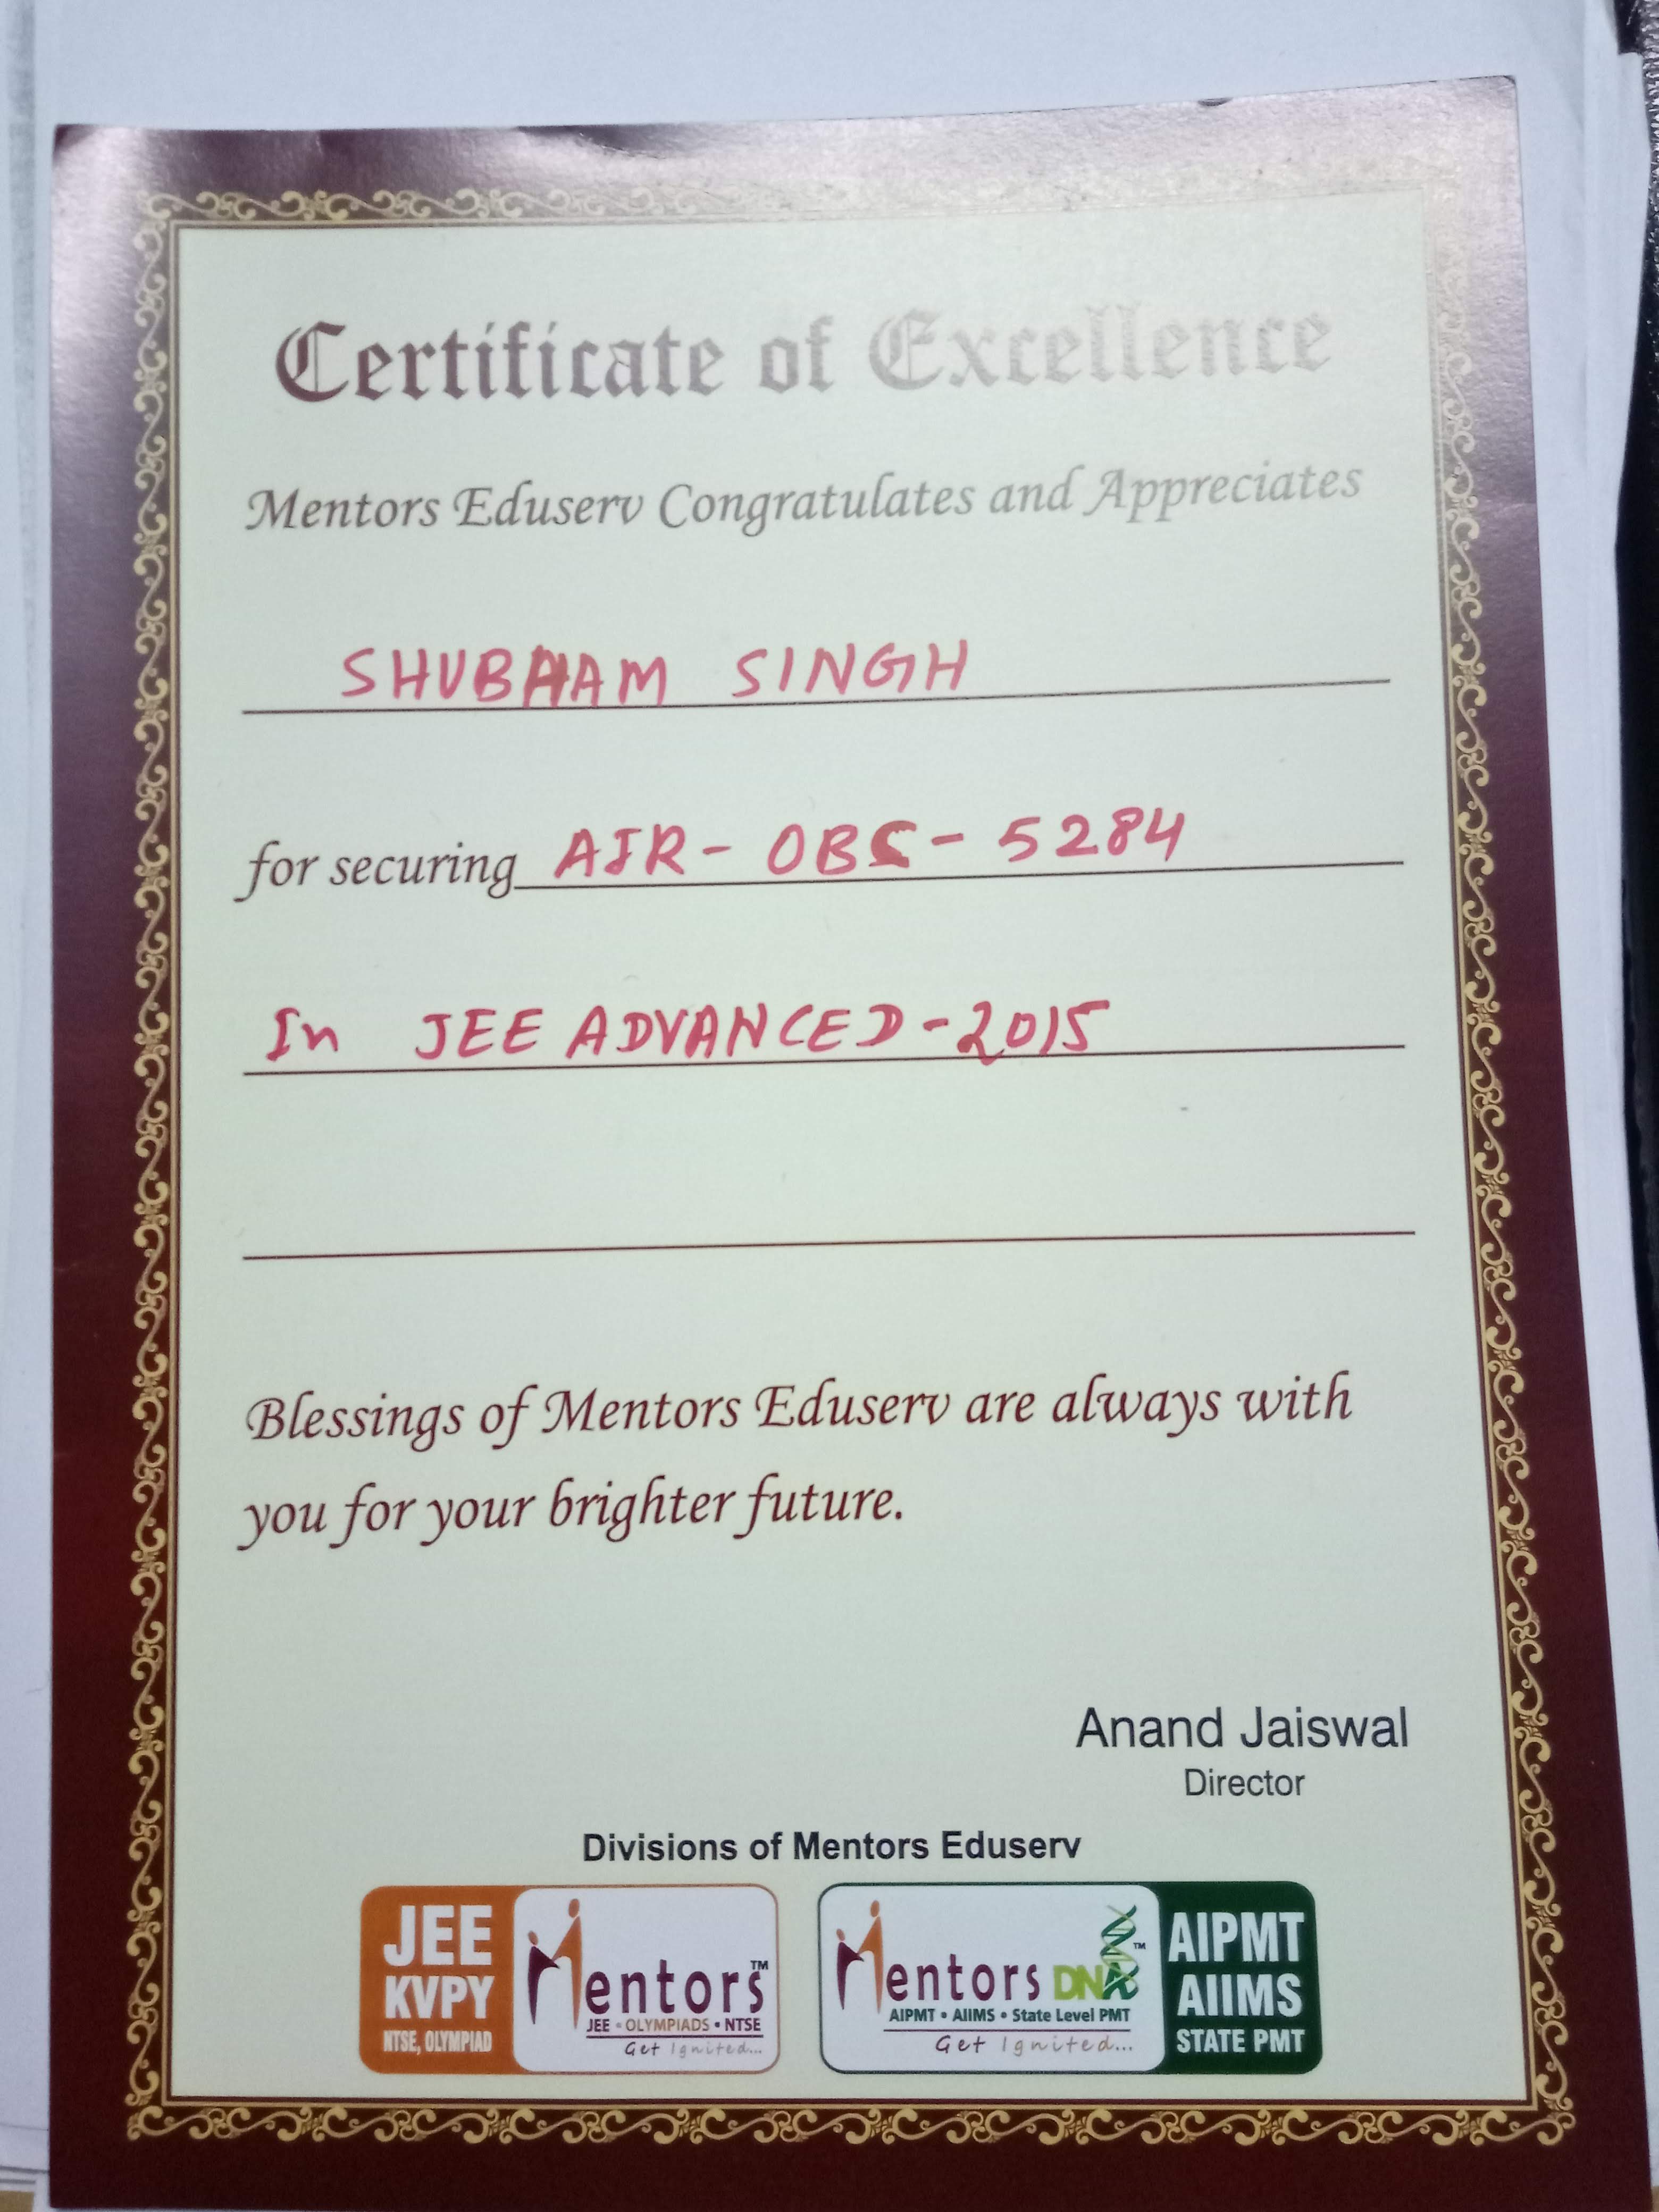 Certificate of Excellence
Mentors Eduserv Congratulates and Appreciates
SHUBHAM SINGH
for securing AIR - OBC - 5284
In JEE ADVANCED - 2015
Blessings of Mentors Eduserv are always with
you for your brighter future.
Anand Jaiswal
Director
Divisions of Mentors Eduserv
JEE
KVPY
NTSE, OLYMPIAD
Mentors™
JEE • OLYMPIADS • NTSE
Get Ignited...
Mentors DNA™
AIPMT • AIIMS • State Level PMT
Get Ignited...
AIPMT
AIIMS
STATE PMT